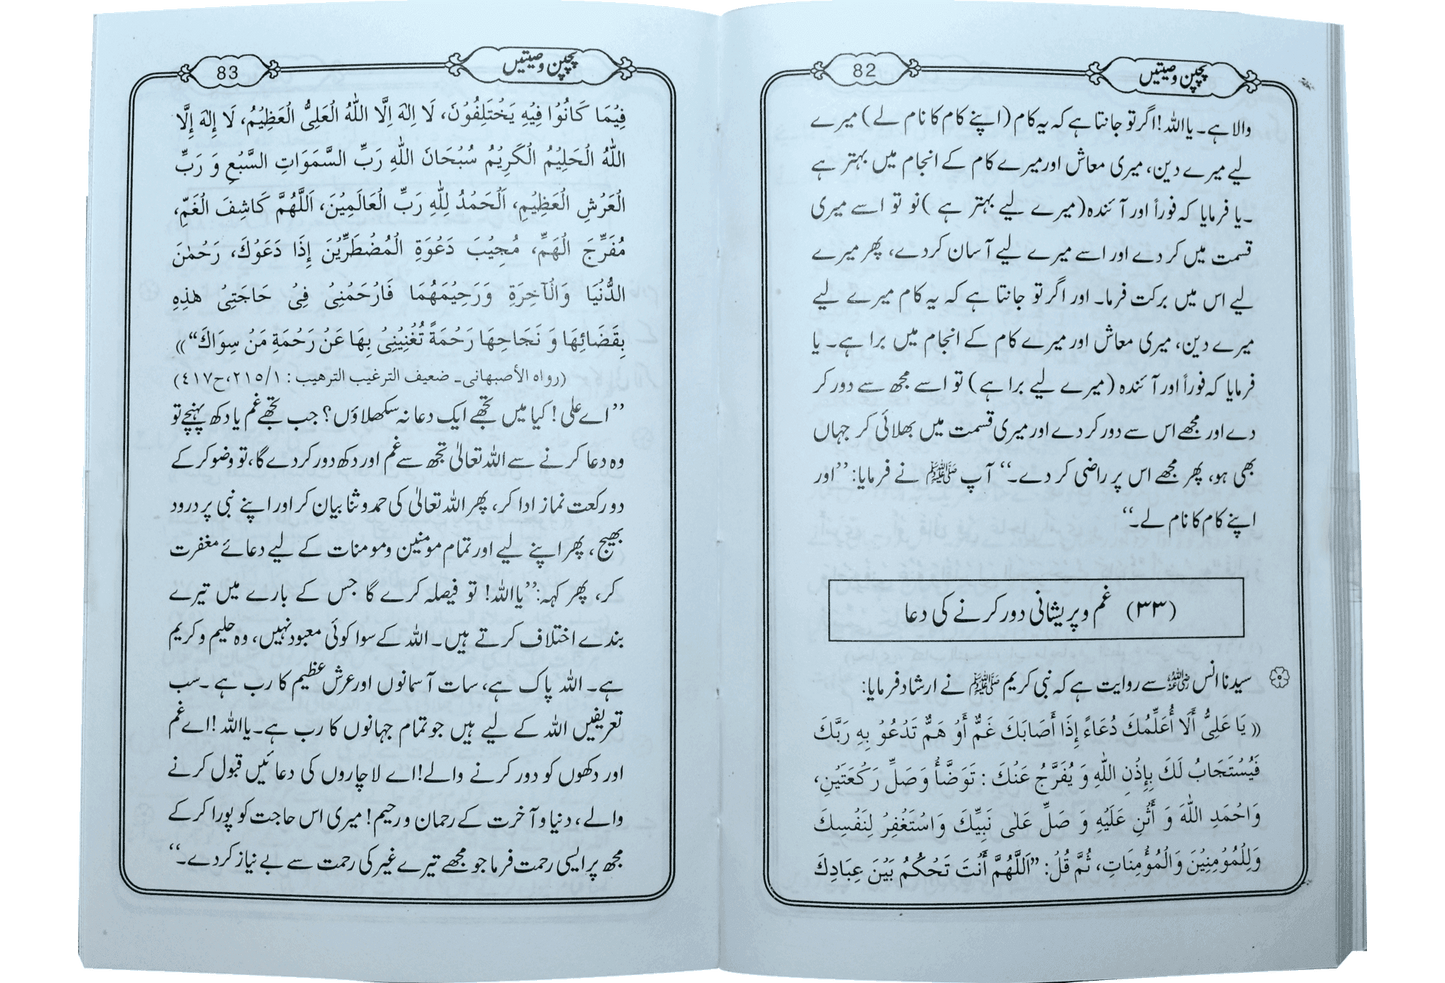 پچپن وصیتیں
82
والا ہے۔ یا اللہ! اگر تو جانتا ہے کہ یہ کام (اپنے کام کا نام لے) میرے
لیے میرے دین، میری معاش اور میرے کام کے انجام میں بہتر ہے
۔یا فرمایا کہ فوراً اور آئندہ (میرے لیے بہتر ہے )نو تو اسے میری
قسمت میں کر دے اور اسے میرے لیے آسان کر دے، پھر میرے
لیے اس میں برکت فرما۔ اور اگر تو جانتا ہے کہ یہ کام میرے لیے
میرے دین، میری معاش اور میرے کام کے انجام میں برا ہے۔ یا
فرمایا کہ فوراً اور آئندہ (میرے لیے برا ہے) تو اسے مجھ سے دور کر
دے اور مجھے اس سے دور کر دے اور میری قسمت میں بھلائی کر جہاں
بھی ہو، پھر مجھے اس پر راضی کر دے۔“ آپ ﷺ نے فرمایا: ”اور
اپنے کام کا نام لے۔“
(۳۳) غم و پریشانی دور کرنے کی دعا
سیدنا انس رضی اللہ عنہ سے روایت ہے کہ نبی کریم ﷺ نے ارشاد فرمایا:
(( يَا عَلِيُّ أَلَا أُعَلِّمُكَ دُعَاءً إِذَا أَصَابَكَ غَمٌّ أَوْ هَمٌّ تَدْعُوْ بِهِ رَبَّكَ
فَيُسْتَجَابُ لَكَ بِإِذْنِ اللّٰهِ وَ يُفَرَّجُ عَنْكَ : تَوَضَّأْ وَصَلِّ رَكْعَتَيْنِ،
وَاحْمَدِ اللّٰهَ وَ أَثْنِ عَلَيْهِ وَ صَلِّ عَلٰى نَبِيِّكَ وَاسْتَغْفِرْ لِنَفْسِكَ
وَلِلْمُؤْمِنِيْنَ وَالْمُؤْمِنَاتِ، ثُمَّ قُلْ: ”اَللّٰهُمَّ أَنْتَ تَحْكُمُ بَيْنَ عِبَادِكَ
پچپن وصیتیں
83
فِيْمَا كَانُوْا فِيْهِ يَخْتَلِفُوْنَ، لَا اِلٰهَ اِلَّا اللّٰهُ الْعَلِىُّ الْعَظِيْمُ، لَا إِلٰهَ إِلَّا
اللّٰهُ الْحَلِيْمُ الْكَرِيْمُ سُبْحَانَ اللّٰهِ رَبِّ السَّمَوَاتِ السَّبْعِ وَ رَبِّ
الْعَرْشِ الْعَظِيْمِ، اَلْحَمْدُ لِلّٰهِ رَبِّ الْعَالَمِيْنَ، اَللّٰهُمَّ كَاشِفَ الْغَمِّ،
مُفَرِّجَ الْهَمِّ، مُجِيْبَ دَعْوَةِ الْمُضْطَرِّيْنَ إِذَا دَعَوْكَ، رَحْمٰنَ
الدُّنْيَا وَالْآخِرَةِ وَرَحِيْمَهُمَا فَارْحَمْنِىْ فِىْ حَاجَتِىْ هٰذِهِ
بِقَضَائِهَا وَ نَجَاحِهَا رَحْمَةً تُغْنِيْنِىْ بِهَا عَنْ رَحْمَةِ مَنْ سِوَاكَ“ ))
(رواه الأصبهانى۔ ضعيف الترغيب الترهيب : ٢١٥/١،ح٤١٧)
”اے علی! کیا میں تجھے ایک دعا نہ سکھلاؤں؟ جب تجھے غم یا دکھ پہنچے تو
وہ دعا کرنے سے اللہ تعالیٰ تجھ سے غم اور دکھ دور کر دے گا، تو وضو کر کے
دو رکعت نماز ادا کر، پھر اللہ تعالیٰ کی حمد و ثنا بیان کر اور اپنے نبی پر درود
بھیج، پھر اپنے لیے اور تمام مومنین ومومنات کے لیے دعائے مغفرت
کر، پھر کہہ: ”یا اللہ! تو فیصلہ کرے گا جس کے بارے میں تیرے
بندے اختلاف کرتے ہیں۔ اللہ کے سوا کوئی معبود نہیں، وہ حلیم و کریم
ہے۔ اللہ پاک ہے، سات آسمانوں اور عرش عظیم کا رب ہے ۔سب
تعریفیں اللہ کے لیے ہیں جو تمام جہانوں کا رب ہے۔ یا اللہ !اے غم
اور دکھوں کو دور کرنے والے! اے لاچاروں کی دعائیں قبول کرنے
والے، دنیا و آخرت کے رحمان و رحیم! میری اس حاجت کو پورا کر کے
مجھ پر ایسی رحمت فرما جو مجھے تیرے غیر کی رحمت سے بے نیاز کر دے۔“